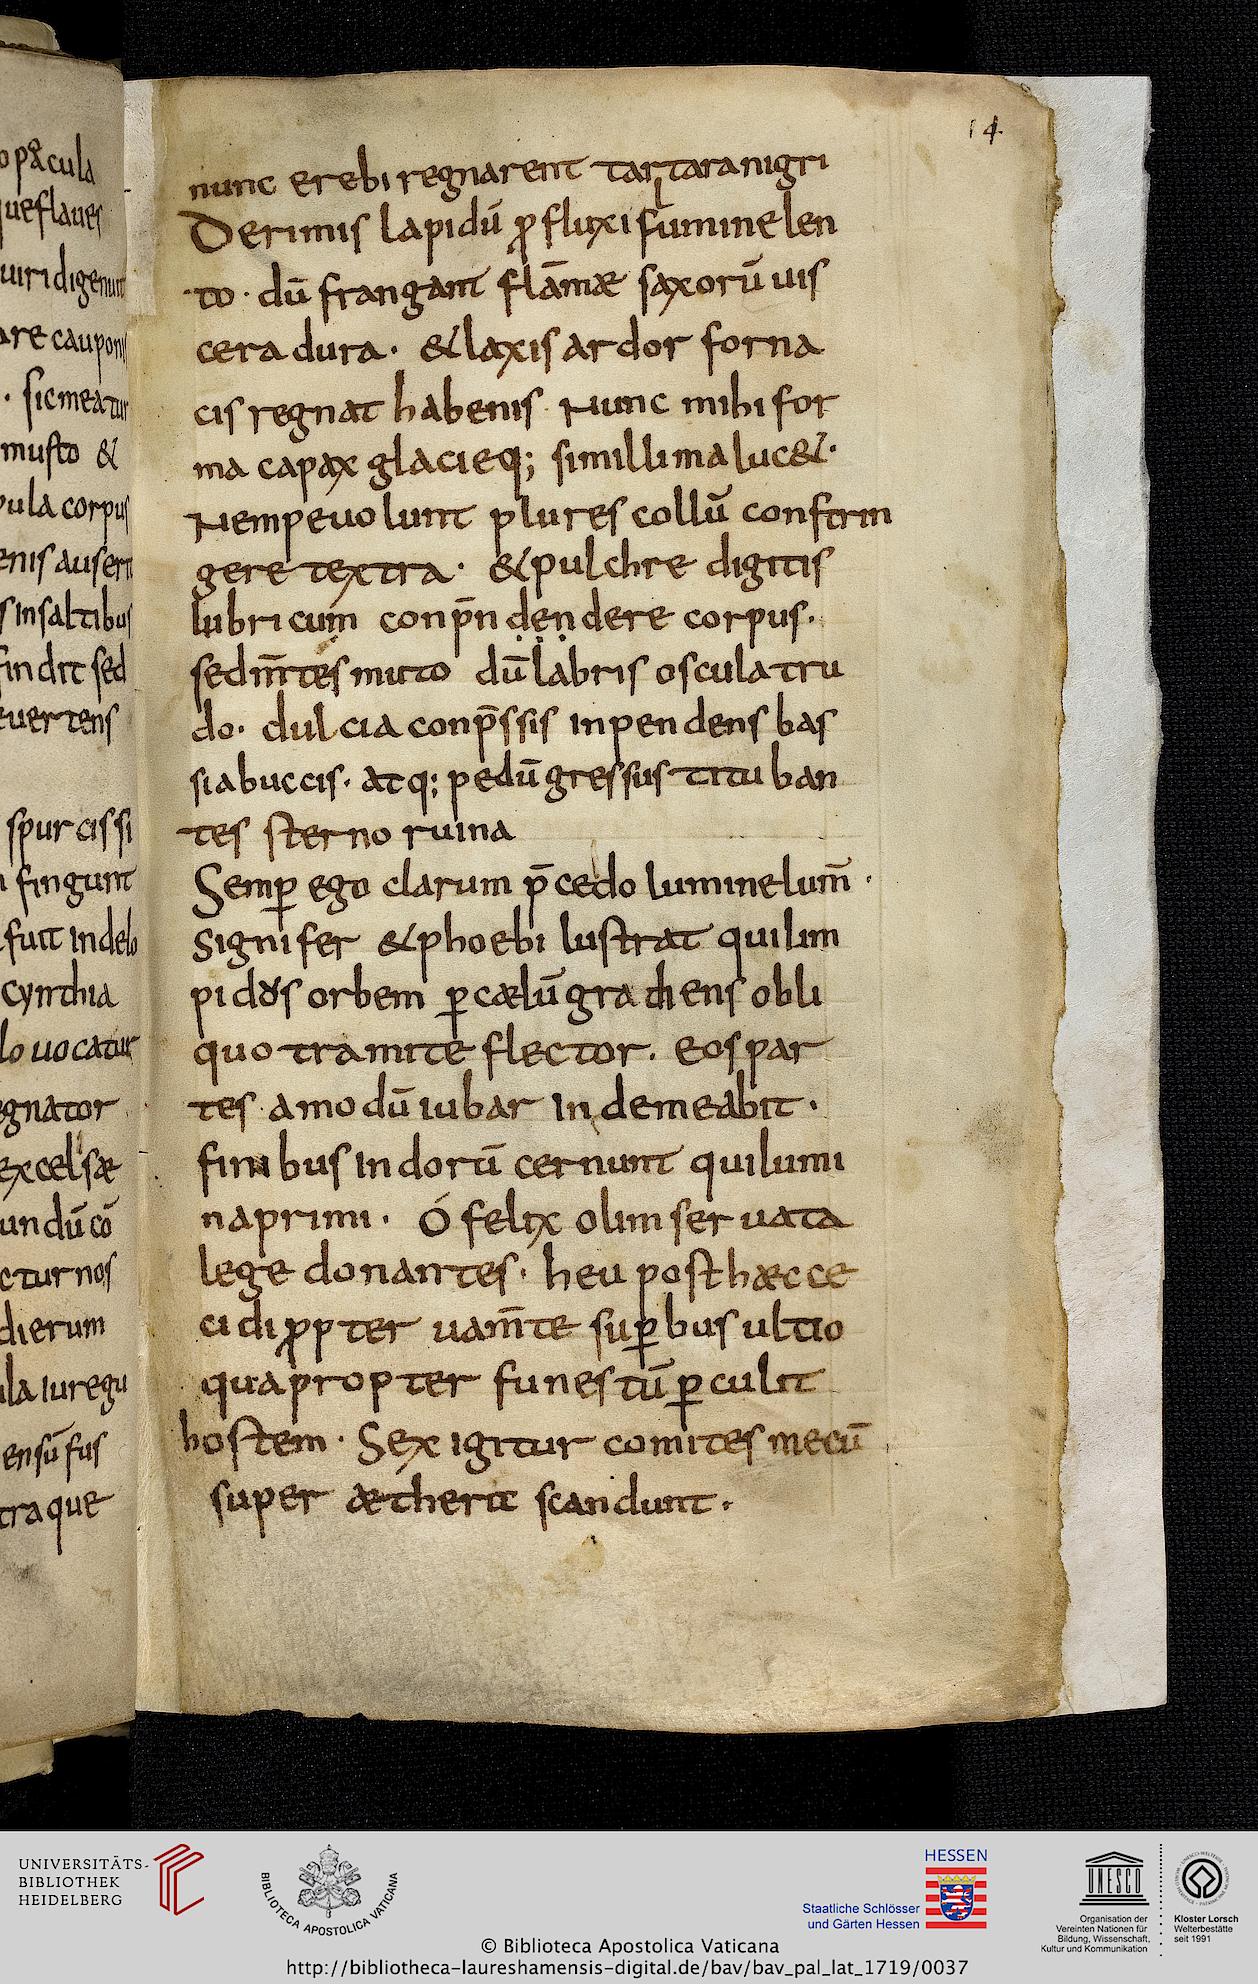 opacula
ueflaues
uiridigenunt
are cauponis
· sicmeatur
musto &
ula corpus
enis auserit
s insaltibus
findit sed
euertens
spurcissi
fingunt
fuit indelo
cynthia
lo uocatur
egnator
excelsæ
undū cō
cturnos
dierum
ula iuregu
ensū fus
traque
14
nunc erebi regnarent tartara nigri
De rimis lapidū ꝓfluxi flumine len
to · dū frangant flāmæ saxorū uis
cera dura · & laxis ardor forna
cis regnat habenis Nunc mihi for
ma capax glacieq; simillima luc& ·
Nempe uolunt plures collū confrin
gere textra · & pulchre digitis
lubricum conp̄nden dere corpus ·
sed m̄tes muto dū labris oscula tru
do · dulcia conp̄ssis inpendens bas
sia buccis · atq; pedū gressus tituban
tes sterno ruina
Semꝑ ego clarum p̄cedo lumine lum̄ ·
signifer & phoebi lustrat qui lim
pidus orbem ꝑ cælū gradiens obli
quo tramite flector · Eos par
tes amo dū iubar in de meabit ·
finibus indorū cernunt qui lumi
na primi · Ó felix olim seruata
lege donantes · heu post hæc ce
cidi ꝓpter uam̄te suꝑbus ultio
quapropter funestū ꝑculit
hostem · Sex igitur comites mecū
super ætherit scandunt ·
UNIVERSITÄTS-
BIBLIOTHEK
HEIDELBERG
BIBLIOTECA APOSTOLICA VATICANA
HESSEN
Staatliche Schlösser
und Gärten Hessen
UNESCO
Organisation der
Vereinten Nationen für
Bildung, Wissenschaft,
Kultur und Kommunikation
Kloster Lorsch
Welterbestätte
seit 1991
© Biblioteca Apostolica Vaticana
http://bibliotheca-laureshamensis-digital.de/bav/bav_pal_lat_1719/0037